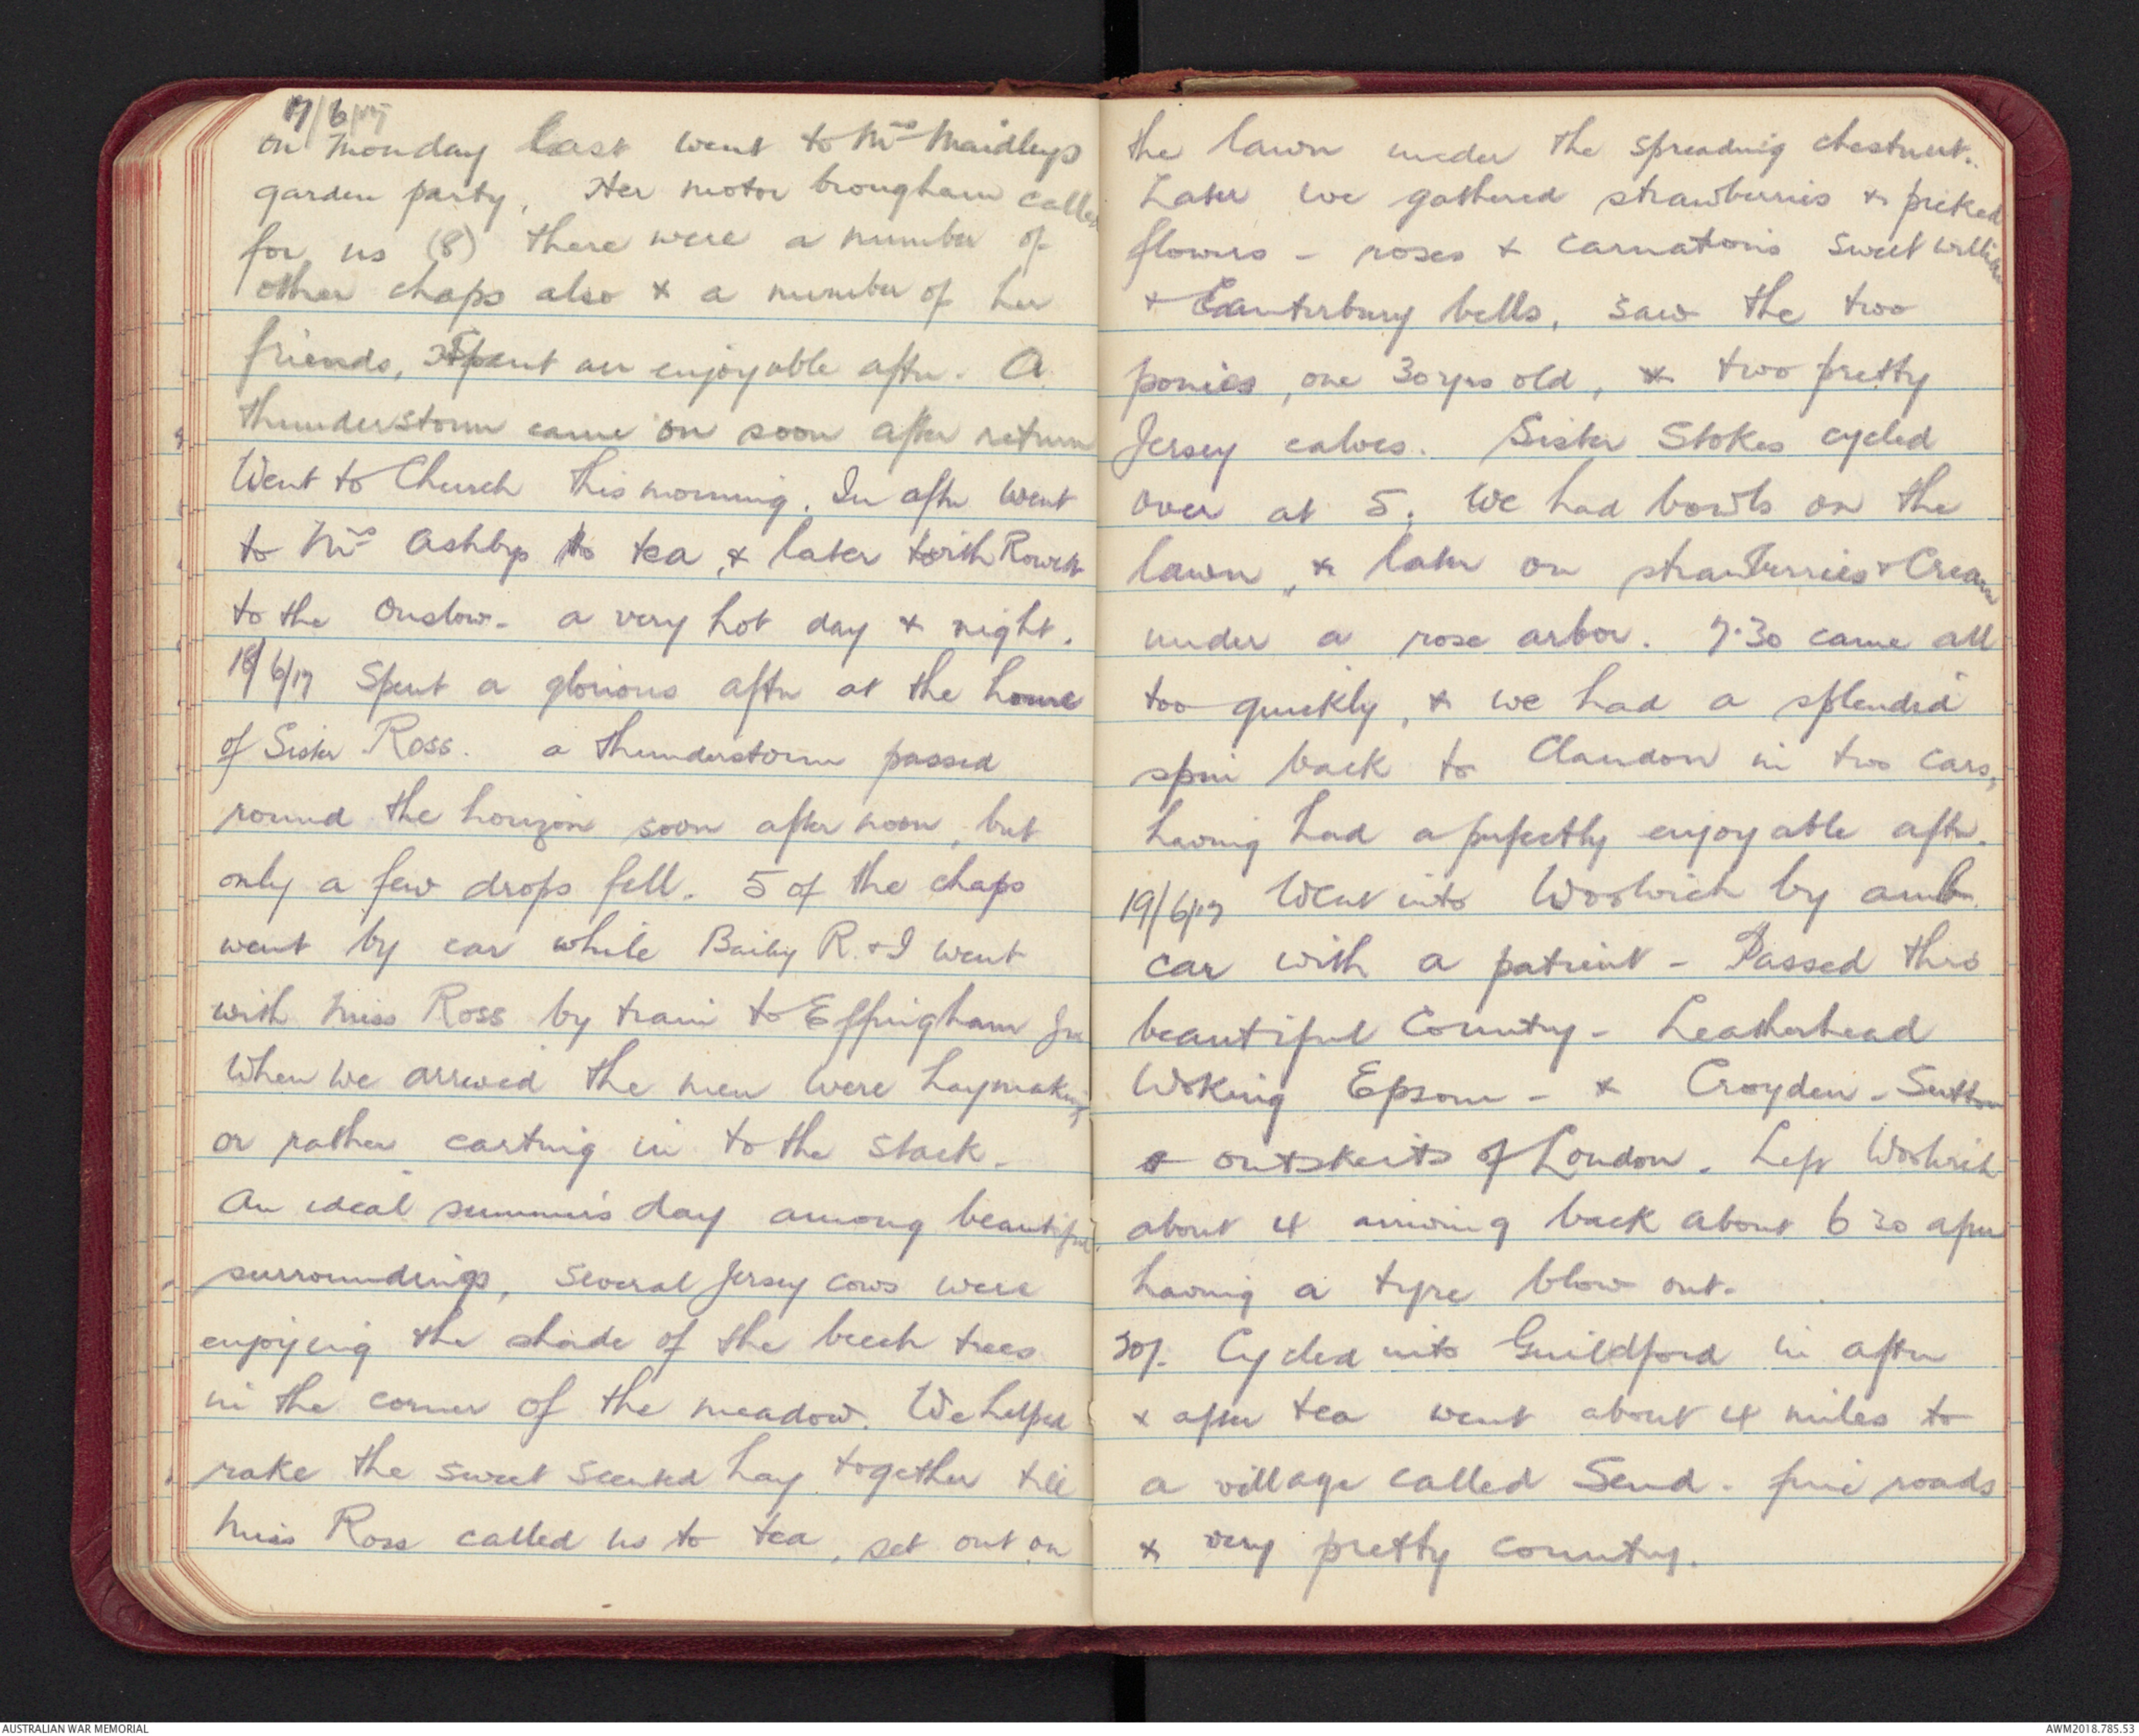 17/6/17
on Monday last went to Mrs Maidleys
garden party. Her motor brougham called
for us (8) there were a number of
other chaps also & a number of her
friends, spent an enjoyable aftn. A
thunderstorm came on soon after return
Went to Church this morning. In aftn went
to Mrs Ashbys to tea, & later with
to the Onslow. a very hot day & night.
18/6/17 Spent a glorious aftn at the home
of Sister Ross. a thunderstorm passed
round the horizon soon after noon, but
only a few drops fell. 5 of the chaps
went by car while Baily R. & I went
with Miss Ross by train to Effingham Jn
When we arrived the men were haymaking
or rather carting in to the stack.
An ideal summer's day among beautiful
surroundings, several Jersey cows were
enjoying the shade of the beech trees
in the corner of the meadow. We helped
rake the sweet scented hay together till
Miss Ross called us to tea, set out on
the lawn under the spreading chestnut.
Later we gathered strawberries & picked
flowers - roses & carnations sweet williams
& Canterbury bells, saw the two
ponies, one 30 yrs old, & two pretty
Jersey calves. Sister Stokes cycled
over at 5. We had bowls on the
lawn, & later on strawberries & Cream
under a rose arbor. 7.30 came all
too quickly, & we had a splendid
spin back to Clandon in two cars,
having had a perfectly enjoyable aftn.
19/6/17 Went into Woolwich by amb.
car with a patient - Passed thro
beautiful Country - Leatherhead
Woking Epsom - & Croyden - Sutton
& outskirts of London. Left Woolwich
about 4 arriving back about 6 30 after
having a tyre blow out.
20/. Cycled into Guildford in aftn
& after tea went about 4 miles to
a village called Send. fine roads
& very pretty country.
AUSTRALIAN WAR MEMORIAL
AWM2018.785.53